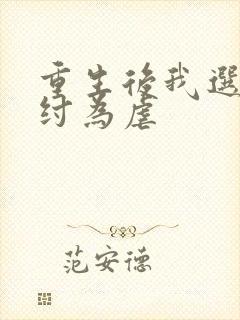 重生後我選
紂為虐
范安德